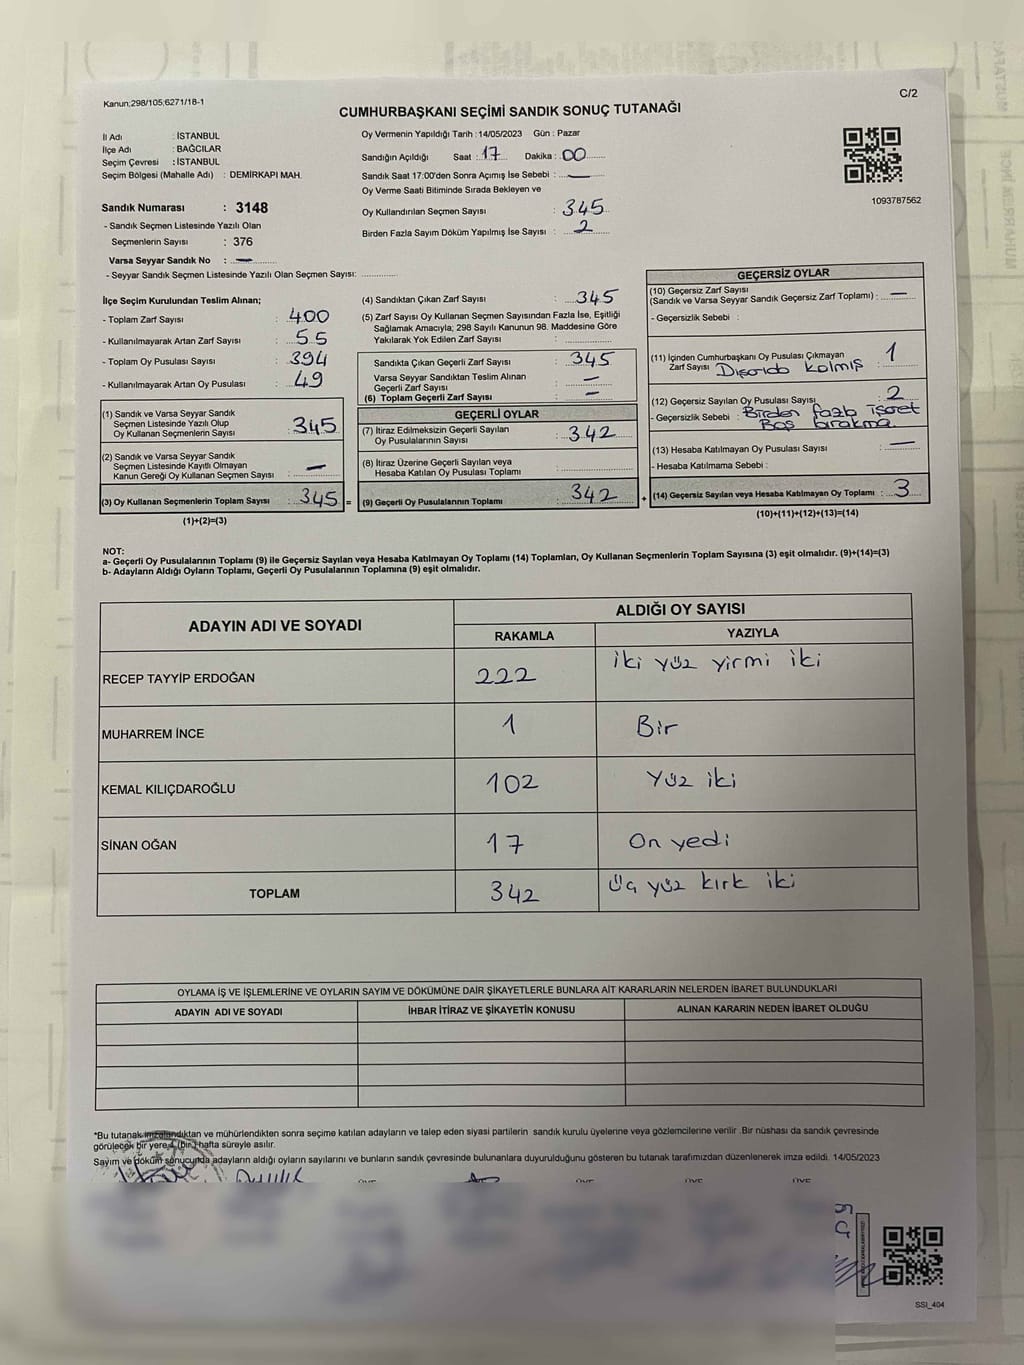 Kanun;298/105;6271/18-1
C/2
CUMHURBAŞKANI SEÇİMİ SANDIK SONUÇ TUTANAĞI
İl Adı : İSTANBUL
İlçe Adı : BAĞCILAR
Seçim Çevresi : İSTANBUL
Seçim Bölgesi (Mahalle Adı) : DEMİRKAPI MAH.
Sandık Numarası : 3148
- Sandık Seçmen Listesinde Yazılı Olan
Seçmenlerin Sayısı : 376
Varsa Seyyar Sandık No : —
- Seyyar Sandık Seçmen Listesinde Yazılı Olan Seçmen Sayısı:
Oy Vermenin Yapıldığı Tarih :14/05/2023 Gün : Pazar
Sandığın Açıldığı Saat : 17 Dakika : 00
Sandık Saat 17:00'den Sonra Açımış İse Sebebi : —
Oy Verme Saati Bitiminde Sırada Bekleyen ve
Oy Kullandırılan Seçmen Sayısı : 345
Birden Fazla Sayım Döküm Yapılmış İse Sayısı : 2
1093787562
İlçe Seçim Kurulundan Teslim Alınan;
- Toplam Zarf Sayısı : 400
- Kullanılmayarak Artan Zarf Sayısı : 55
- Toplam Oy Pusulası Sayısı : 394
- Kullanılmayarak Artan Oy Pusulası : 49
(1) Sandık ve Varsa Seyyar Sandık
Seçmen Listesinde Yazılı Olup
Oy Kullanan Seçmenlerin Sayısı : 345
(2) Sandık ve Varsa Seyyar Sandık
Seçmen Listesinde Kayıtlı Olmayan
Kanun Gereği Oy Kullanan Seçmen Sayısı : —
(3) Oy Kullanan Seçmenlerin Toplam Sayısı : 345 =
(1)+(2)=(3)
(4) Sandıktan Çıkan Zarf Sayısı : 345
(5) Zarf Sayısı Oy Kullanan Seçmen Sayısından Fazla İse, Eşitliği
Sağlamak Amacıyla; 298 Sayılı Kanunun 98. Maddesine Göre
Yakılarak Yok Edilen Zarf Sayısı :
Sandıkta Çıkan Geçerli Zarf Sayısı : 345
Varsa Seyyar Sandıktan Teslim Alınan
Geçerli Zarf Sayısı : —
(6) Toplam Geçerli Zarf Sayısı : —
GEÇERLİ OYLAR
(7) İtiraz Edilmeksizin Geçerli Sayılan
Oy Pusulalarının Sayısı : 342
(8) İtiraz Üzerine Geçerli Sayılan veya
Hesaba Katılan Oy Pusulası Toplamı :
(9) Geçerli Oy Pusulalarının Toplamı : 342 +
GEÇERSİZ OYLAR
(10) Geçersiz Zarf Sayısı
(Sandık ve Varsa Seyyar Sandık Geçersiz Zarf Toplamı) : —
- Geçersizlik Sebebi :
(11) İçinden Cumhurbaşkanı Oy Pusulası Çıkmayan
Zarf Sayısı : 1
Dışarıda kalmış
(12) Geçersiz Sayılan Oy Pusulası Sayısı : 2
- Geçersizlik Sebebi : Birden fazla işaret
Boş bırakma.
(13) Hesaba Katılmayan Oy Pusulası Sayısı : —
- Hesaba Katılmama Sebebi :
(14) Geçersiz Sayılan veya Hesaba Katılmayan Oy Toplamı : 3
(10)+(11)+(12)+(13)=(14)
NOT:
a- Geçerli Oy Pusulalarının Toplamı (9) ile Geçersiz Sayılan veya Hesaba Katılmayan Oy Toplamı (14) Toplamları, Oy Kullanan Seçmenlerin Toplam Sayısına (3) eşit olmalıdır. (9)+(14)=(3)
b- Adayların Aldığı Oyların Toplamı, Geçerli Oy Pusulalarının Toplamına (9) eşit olmalıdır.
ADAYIN ADI VE SOYADI
ALDIĞI OY SAYISI
RAKAMLA YAZIYLA
RECEP TAYYİP ERDOĞAN 222 iki yüz yirmi iki
MUHARREM İNCE 1 Bir
KEMAL KILIÇDAROĞLU 102 Yüz iki
SİNAN OĞAN 17 On yedi
TOPLAM 342 Üç yüz kırk iki
OYLAMA İŞ VE İŞLEMLERİNE VE OYLARIN SAYIM VE DÖKÜMÜNE DAİR ŞİKAYETLERLE BUNLARA AİT KARARLARIN NELERDEN İBARET BULUNDUKLARI
ADAYIN ADI VE SOYADI İHBAR İTİRAZ VE ŞİKAYETİN KONUSU ALINAN KARARIN NEDEN İBARET OLDUĞU
*Bu tutanak imzalandıktan ve mühürlendikten sonra seçime katılan adayların ve talep eden siyasi partilerin sandık kurulu üyelerine veya gözlemcilerine verilir .Bir nüshası da sandık çevresinde
görülecek bir yere 1 (bir) hafta süreyle asılır.
Sayım ve döküm sonucunda adayların aldığı oyların sayılarını ve bunların sandık çevresinde bulunanlara duyurulduğunu gösteren bu tutanak tarafımızdan düzenlenerek imza edildi. 14/05/2023
SSI_404